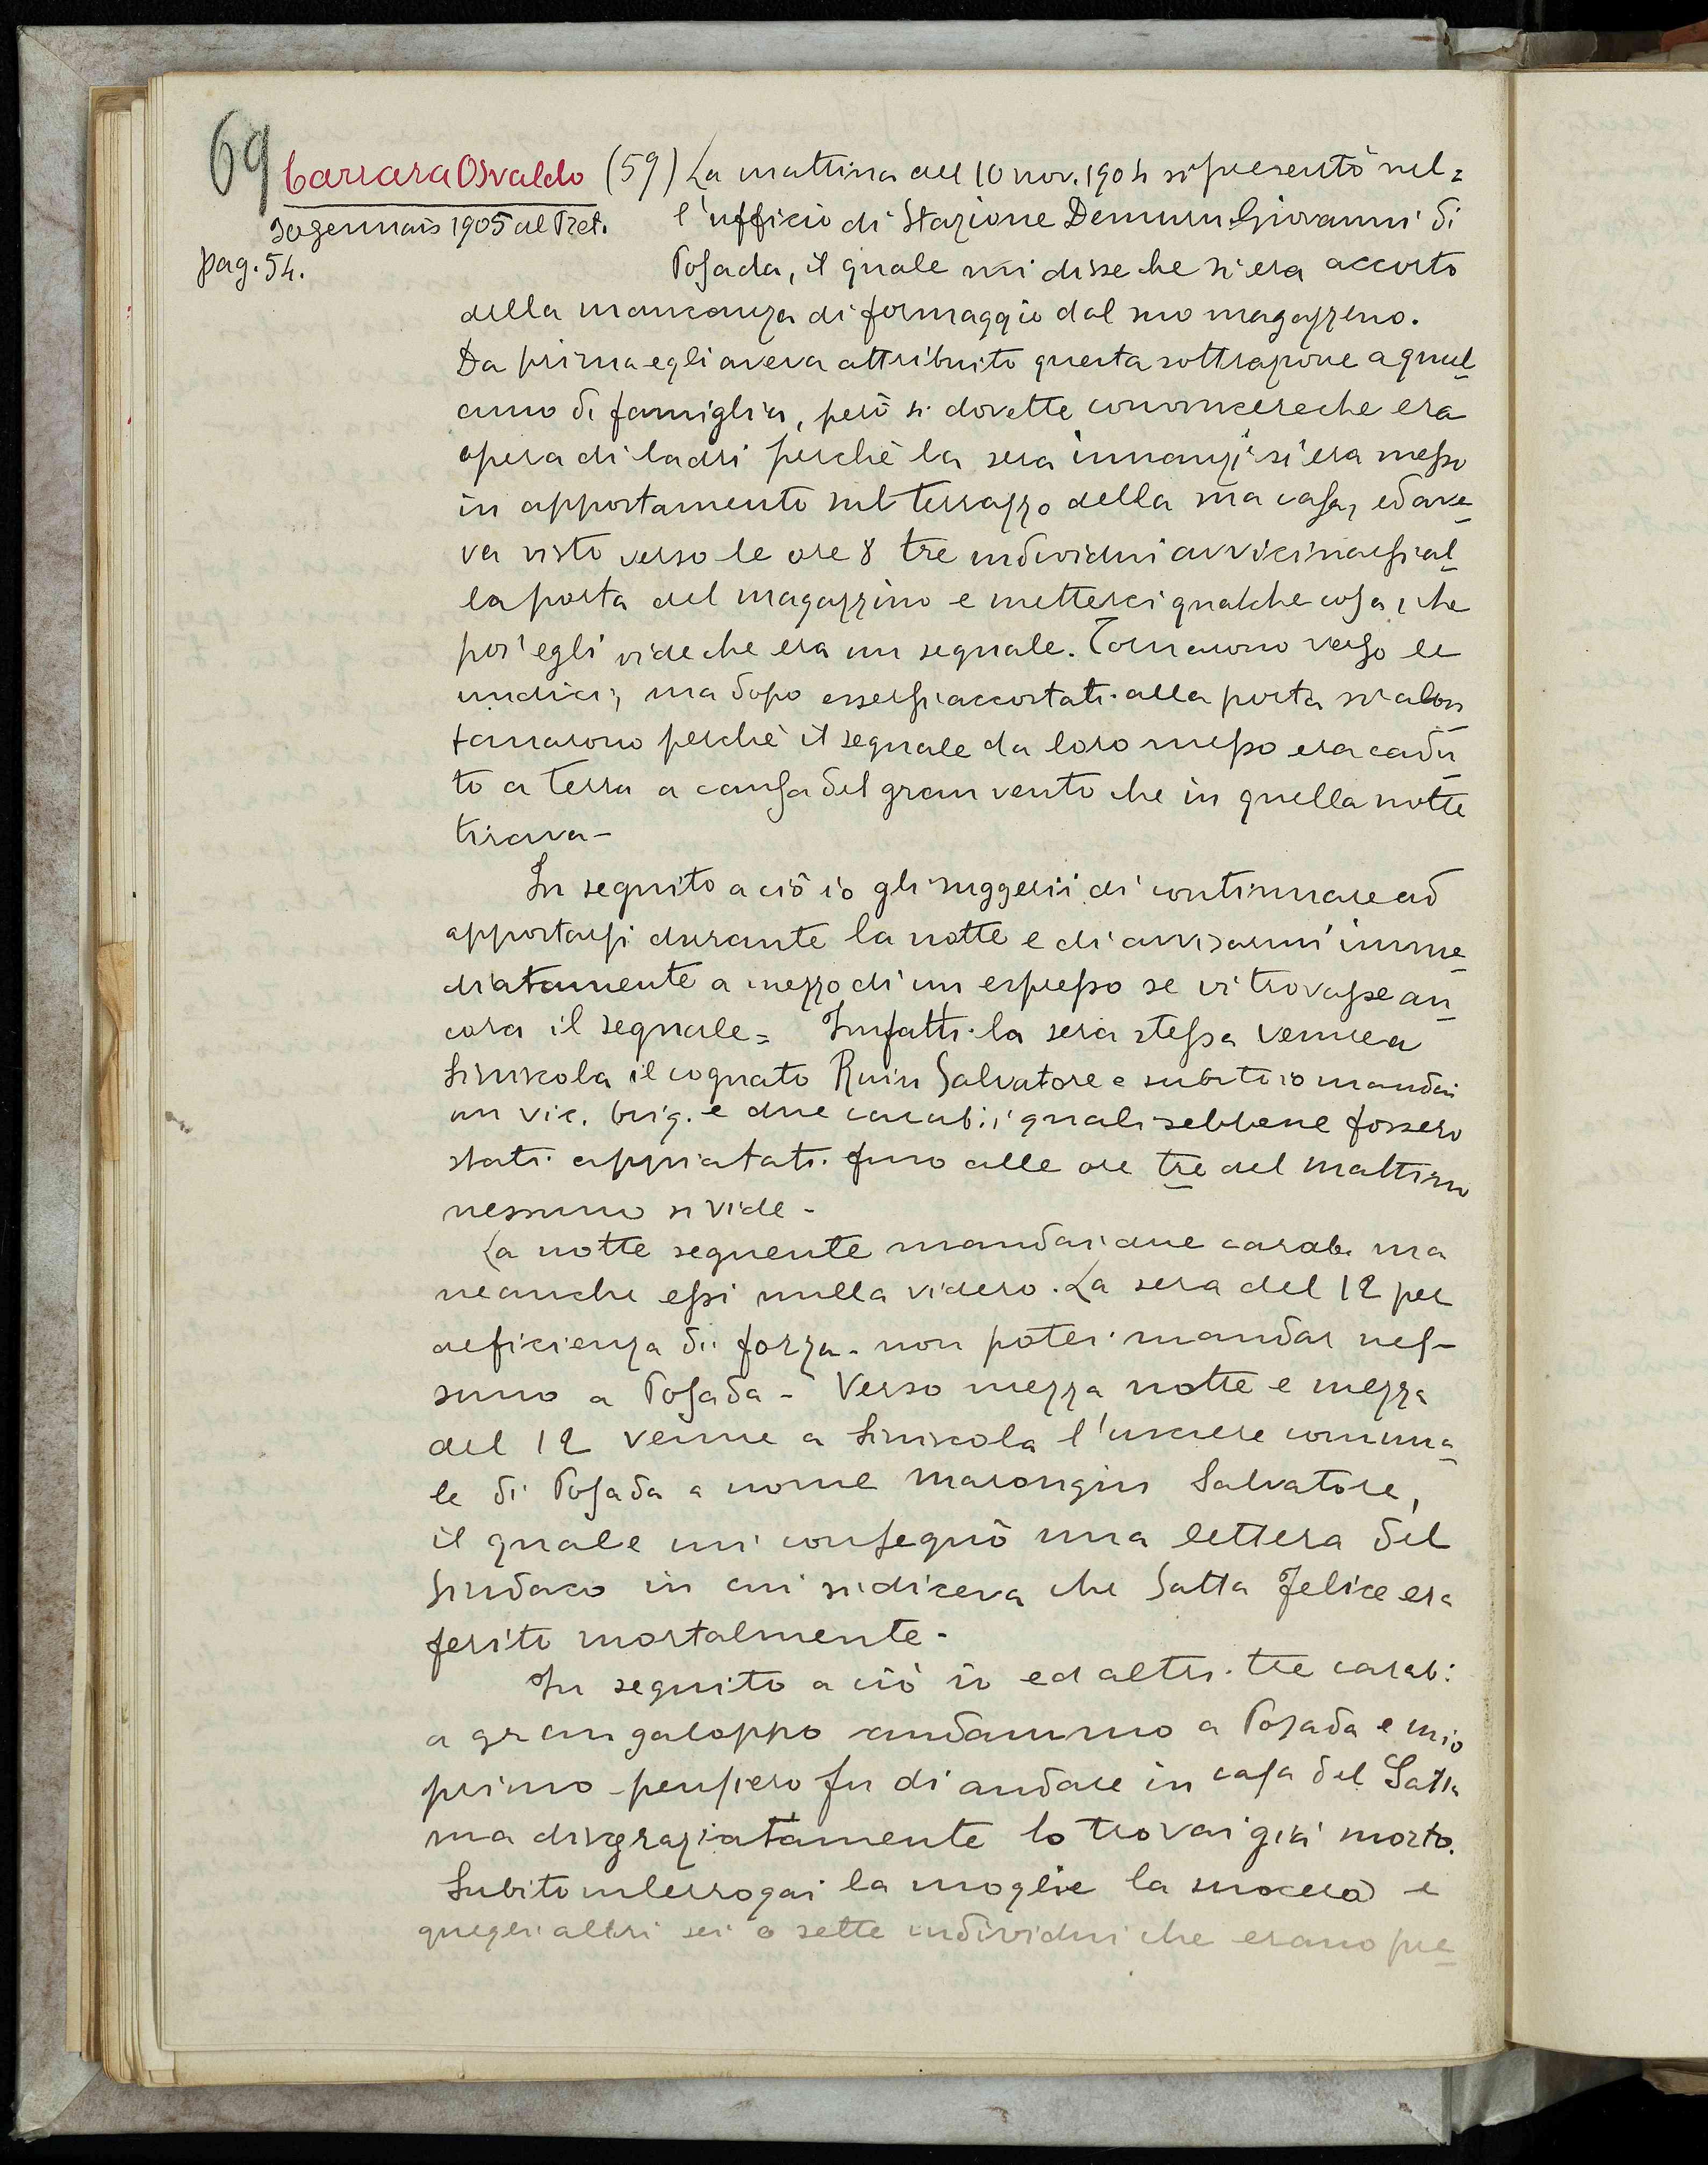 69
Carrara Osvaldo (59) La mattina del 10 nov. 1904 si presentò nel=
30 gennaio 1905 al Pret. l'ufficio di Stazione Demuru Giovanni di
pag. 54. Posada, il quale mi disse che si era accorto
della mancanza di formaggio dal suo magazzeno.
Da prima egli aveva attribuito questa sottrazione a qual
cuno di famiglia, però si dovette convincere che era
opera di ladri perchè la sera innanzi si era messo
in appostamento sul terrazzo della sua casa, ed ave
va visto verso le ore 8 tre individui avvicinarsi al
la porta del magazzino e metterci qualche cosa, che
poi egli vide che era un segnale. Tornarono verso le
undici, ma dopo essersi accostati alla porta si alon
tanarono perchè il segnale da loro messo era cadu
to a terra a causa del gran vento che in quella notte
tirava -
In seguito a ciò io gli suggerii di continuare ad
appostarsi durante la notte e di avvisarmi imme
diatamente a mezzo di un espresso se vi trovasse an
cora il segnale = Infatti la sera stessa venne a
Siniscola il cognato Ruiu Salvatore e subito io mandai
un vic. brig. e due carab: i quali sebbene fossero
stati appiatati fino alle ore tre del mattino
nessuno si vide -
La notte seguente mandai due carab. ma
neanche essi nulla videro. La sera del 12 per
deficienza di forza non potei mandar nes-
suno a Posada - Verso mezza notte e mezza
del 12 venne a Siniscola l'usciere comuna
le di Posada a nome Marongiu Salvatore,
il quale mi consegnò una lettera del
Sindaco in cui si diceva che Satta Felice era
ferito mortalmente -
In seguito a ciò io ed altri tre carab:
a gran galoppo andammo a Posada e mio
primo pensiero fu di andare in casa del Satta
ma disgraziatamente lo trovai già morto.
Subito interrogai la moglie la suocera e
quegli altri sei o sette individui che erano pre